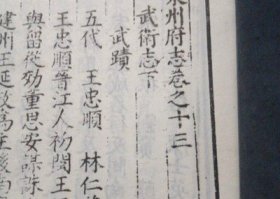 泉州府志卷之十三
武衛志下
武蹟
五代 王忠順 林仁
王忠順晉江人初閩王
與留從効董思安謀誅
建州王延政爲主